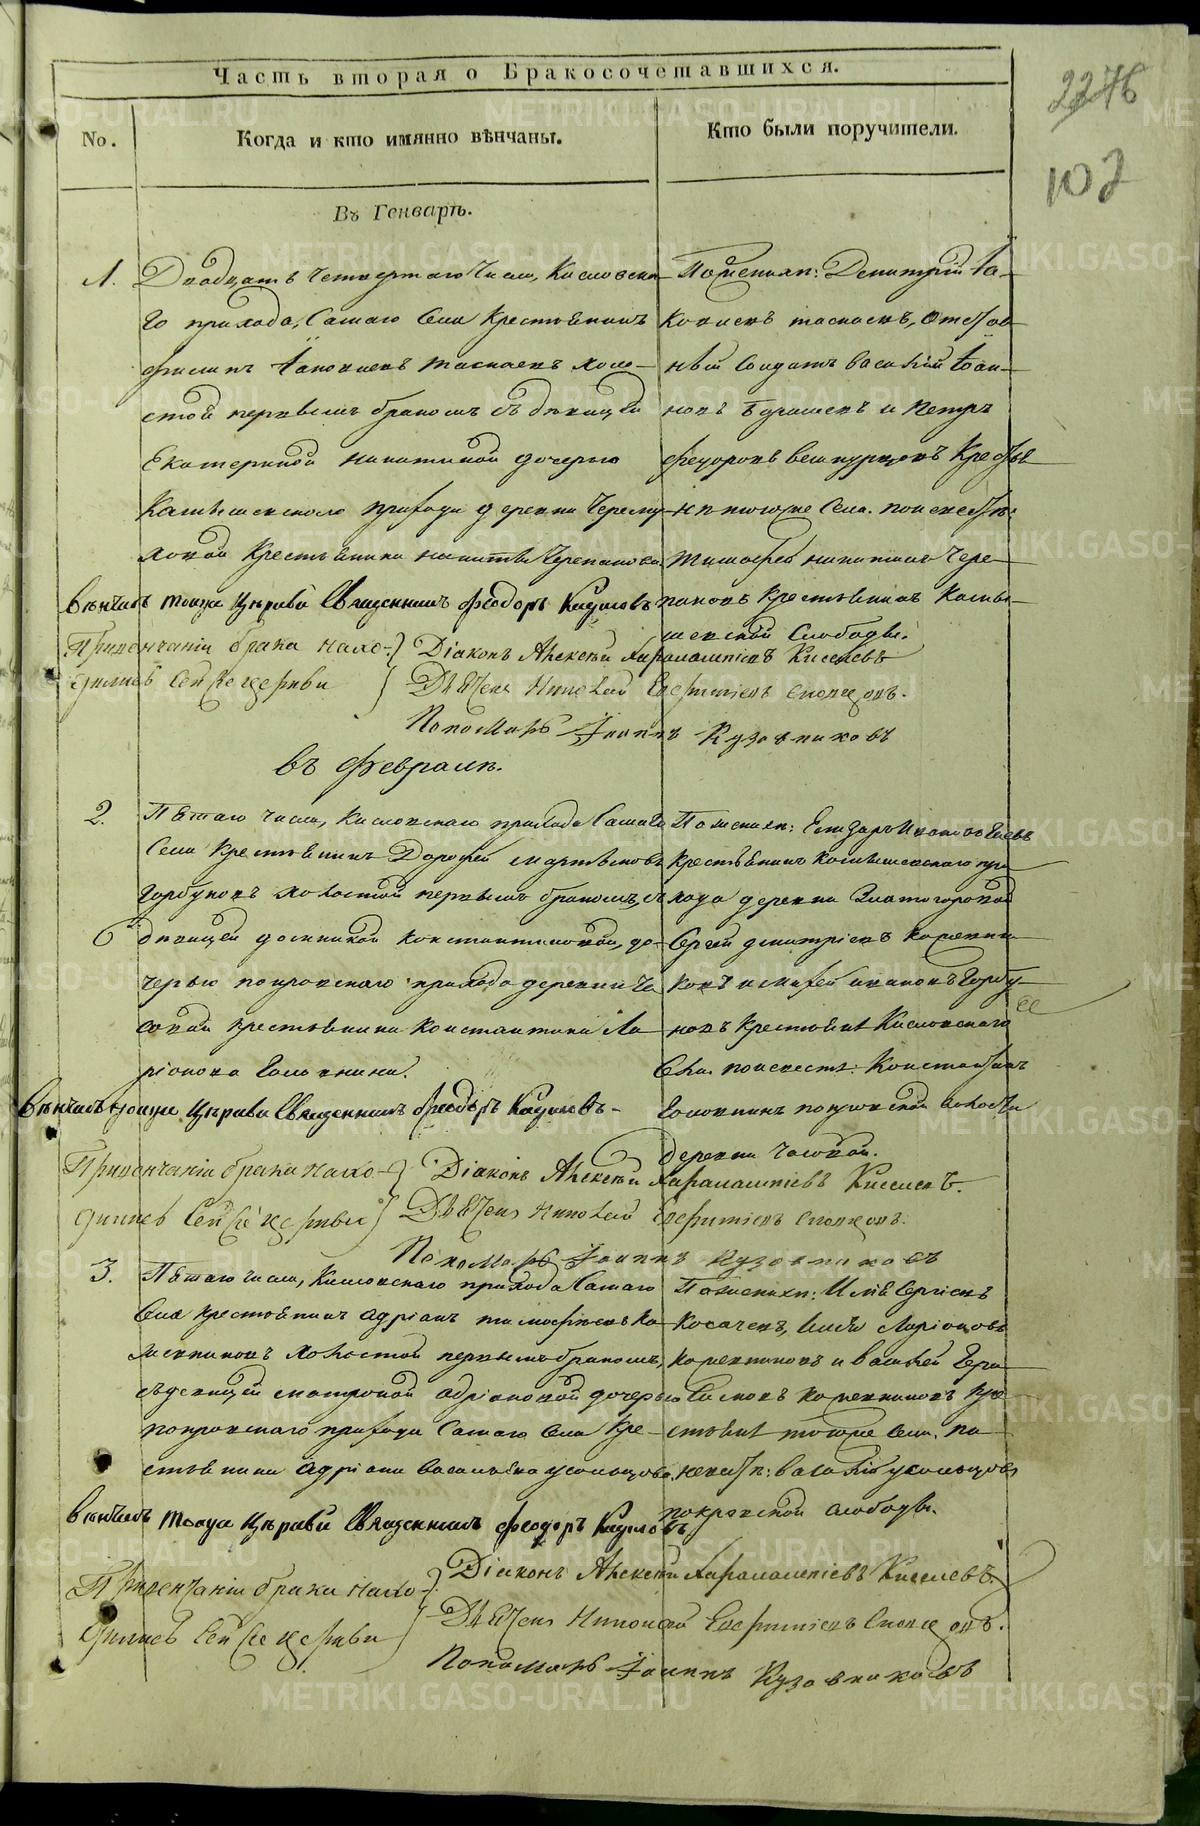 Часть вторая о Бракосочетавшихся.
2276
102
No.
Когда и кто имянно вѣнчаны.
Кто были поручители.
Въ Генварѣ.
1.
Двадцать четвертаго числа, Кисловска-
го прихода, Самаго Села Крестьянинъ
холо-
стой первымъ бракомъ съ дѣвицей
Екатериной Никитиной дочерью
Камышевскаго прихода деревни Черему-
ховой Крестьянина Никиты Черепанова.
По женихѣ: Димитрій Іа-
ковлевъ отстав-
ной Солдатъ Василій Іоан-
новъ и Петръ
Федоровъ Кресть-
тогоже Села. по невѣстѣ:
Тимофей Никитинъ Чере-
пановъ Крестьянинъ Камы-
шевской Слободы.
Вѣнчалъ тояже Церкви Священникъ Феодоръ
При венчаніи брака нахо-
дились Сей же церкви
Діаконъ Алексѣй Харалампіевъ Киселевъ
Дьячекъ Николай
Пономарь Іоаннъ Кузовниковъ
въ Февралѣ.
2.
Пятаго числа, Кисловскаго прихода Самаго
Села Крестьянинъ Дорофей Мартыновъ
Горбуновъ холостой первымъ бракомъ, съ
дѣвицей Домникой Константиновой, до-
черью покровскаго прихода деревни Ча-
совой крестьянина Константина Ла-
ріонова Головнина.
По женихѣ: Елизаръ
крестьянинъ Камышевскаго при-
хода деревни Златогоровой
Сергей Димитріевъ Коженни-
ковъ и Горбу-
новъ крестьяне Кисловскаго
Села. по невестѣ: Константинъ
Головнинъ покровской волости
деревни Часовой.
Вѣнчалъ тояже Церкви Священникъ Феодоръ
При венчаніи брака нахо-
дились Сей же церкви
Діаконъ Алексѣй Харалампіевъ Киселевъ.
Дьячекъ Николай
Пономарь Іоаннъ Кузовниковъ
3.
Пятаго числа, Кисловскаго прихода Самаго
Села крестьянинъ Адріанъ Тимофѣевъ Ко-
женниковъ холостой первымъ бракомъ,
съ девицей Матроной Адріановой дочерью
покровскаго прихода Самаго Села Кре-
стьянина Адріана Васильева Усольцова.
По женихѣ: Илья Сергіевъ
Косачевъ, Ларіоновъ
Коженниковъ и Василей Гера-
симовъ Коженниковъ Кре-
стьяне тогоже Села. по
невестѣ: Василій Усольцовъ
покровской слободы.
Вѣнчалъ тояже Церкви Священникъ Феодоръ
При венчаніи брака нахо-
дились Сей же церкви
Діаконъ Алексѣй Харалампіевъ Киселевъ.
Дьячекъ Николай
Пономарь Іоаннъ Кузовниковъ
METRIKI.GASO-URAL.RU